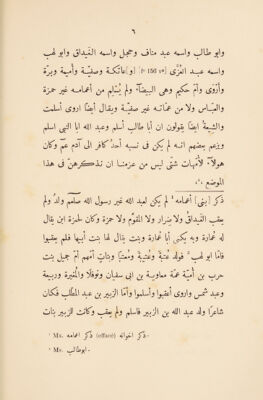 ٦
وابو طالب واسمه عبد مناف وحجل واسمه الغَيْداق وابو لهب
واسمه عبد العُزَّى [fº 156 rº] [و]عاتكة وصفيّة وأميمة وبرّة
وأَرْوَى وامّ حكيم وهى البيضآء ولم يُسْلِم من أعمامه غير حمزة
والعبّاس ولا من عمّاته غير صفيّة ويقال ايضًا اروى أسلمت
والشيعة ايضًا يقولون ان أبا طالب أسلم وعبد الله ابا النبى اسلم
ويزعم بعضهم انه لم يكن فى نسبه أحدٌ كافر الى آدم عمّ وكان
هولآء لأمّهات شتّى ليس من عزمنا ان نذكرهنّ فى هذا
الموضع،،
ذكر [بنى] أعمامه ¹ لم يكن لعبد الله غير رسول الله صلعم ولدٌ ولم
يعقب الغَيْداق ولا ضِرار ولا المقوَّم ولا حمزة وكان لحمزة ابن يقال
له عُمارة وبه يُكنى أبا عُمارة وبنت يقال لها بنت أبيها فلم يعقبوا
فامّا ابو لهب فولد عُتبة وعُتيبة ومُعتّبًا وبناتٍ أمّهم امّ جميل بنت
حرب بن أُميّة عمّة معاوية بن ابى سفيان ونوفلًا والمغيرة وربيعة
وعبد شمس واروى أعقبوا وأسلموا وأمّا الزبير بن عبد المطّلب فكان
شاعرًا ولد عبد الله بن الزبير فاسلم ولم يعقب وكانت الزبير بنات
¹ Ms. ذكر اخوانه (effacé) ذكر اعمامه.
² Ms. ابوطالب.